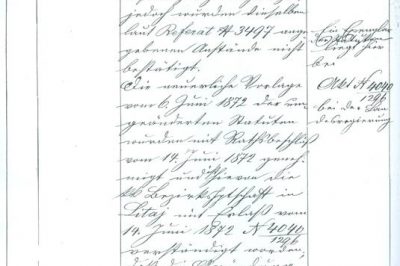 jedoch wurden dieselben
laut Referat № 3497 ange
gebenen Anstände nicht
bestätigt.
Die neuerliche Vorlage
vom 6. Juni 1872 der um
geänderten Statuten
wurden mit Rathsbeschluß
vom 14. Juni 1872 geneh
migt und hievon die
kk Bezirkshptschaft in
Littaj mit Erlaß vom
14. Juni 1872 № 4040/1296
verständigt worden,
Ein Exemplar
der Statuten
liegt hier
bei
Akt № 4040/1296
bei der Lan
desregierung